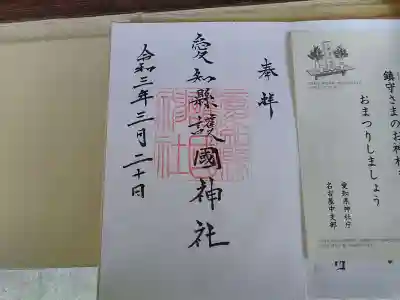 奉拝
愛知縣護國神社
令和三年三月二十日
鎮守さまのお神札を
おまつりしましょう
愛知県神社庁
名古屋中支部